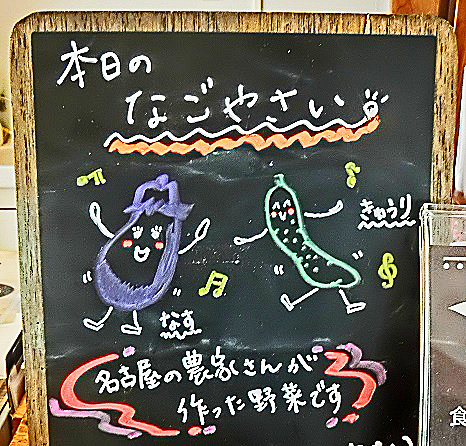 本日の
なごやさい
きゅうり
なす
名古屋の農家さんが
作った野菜です
食